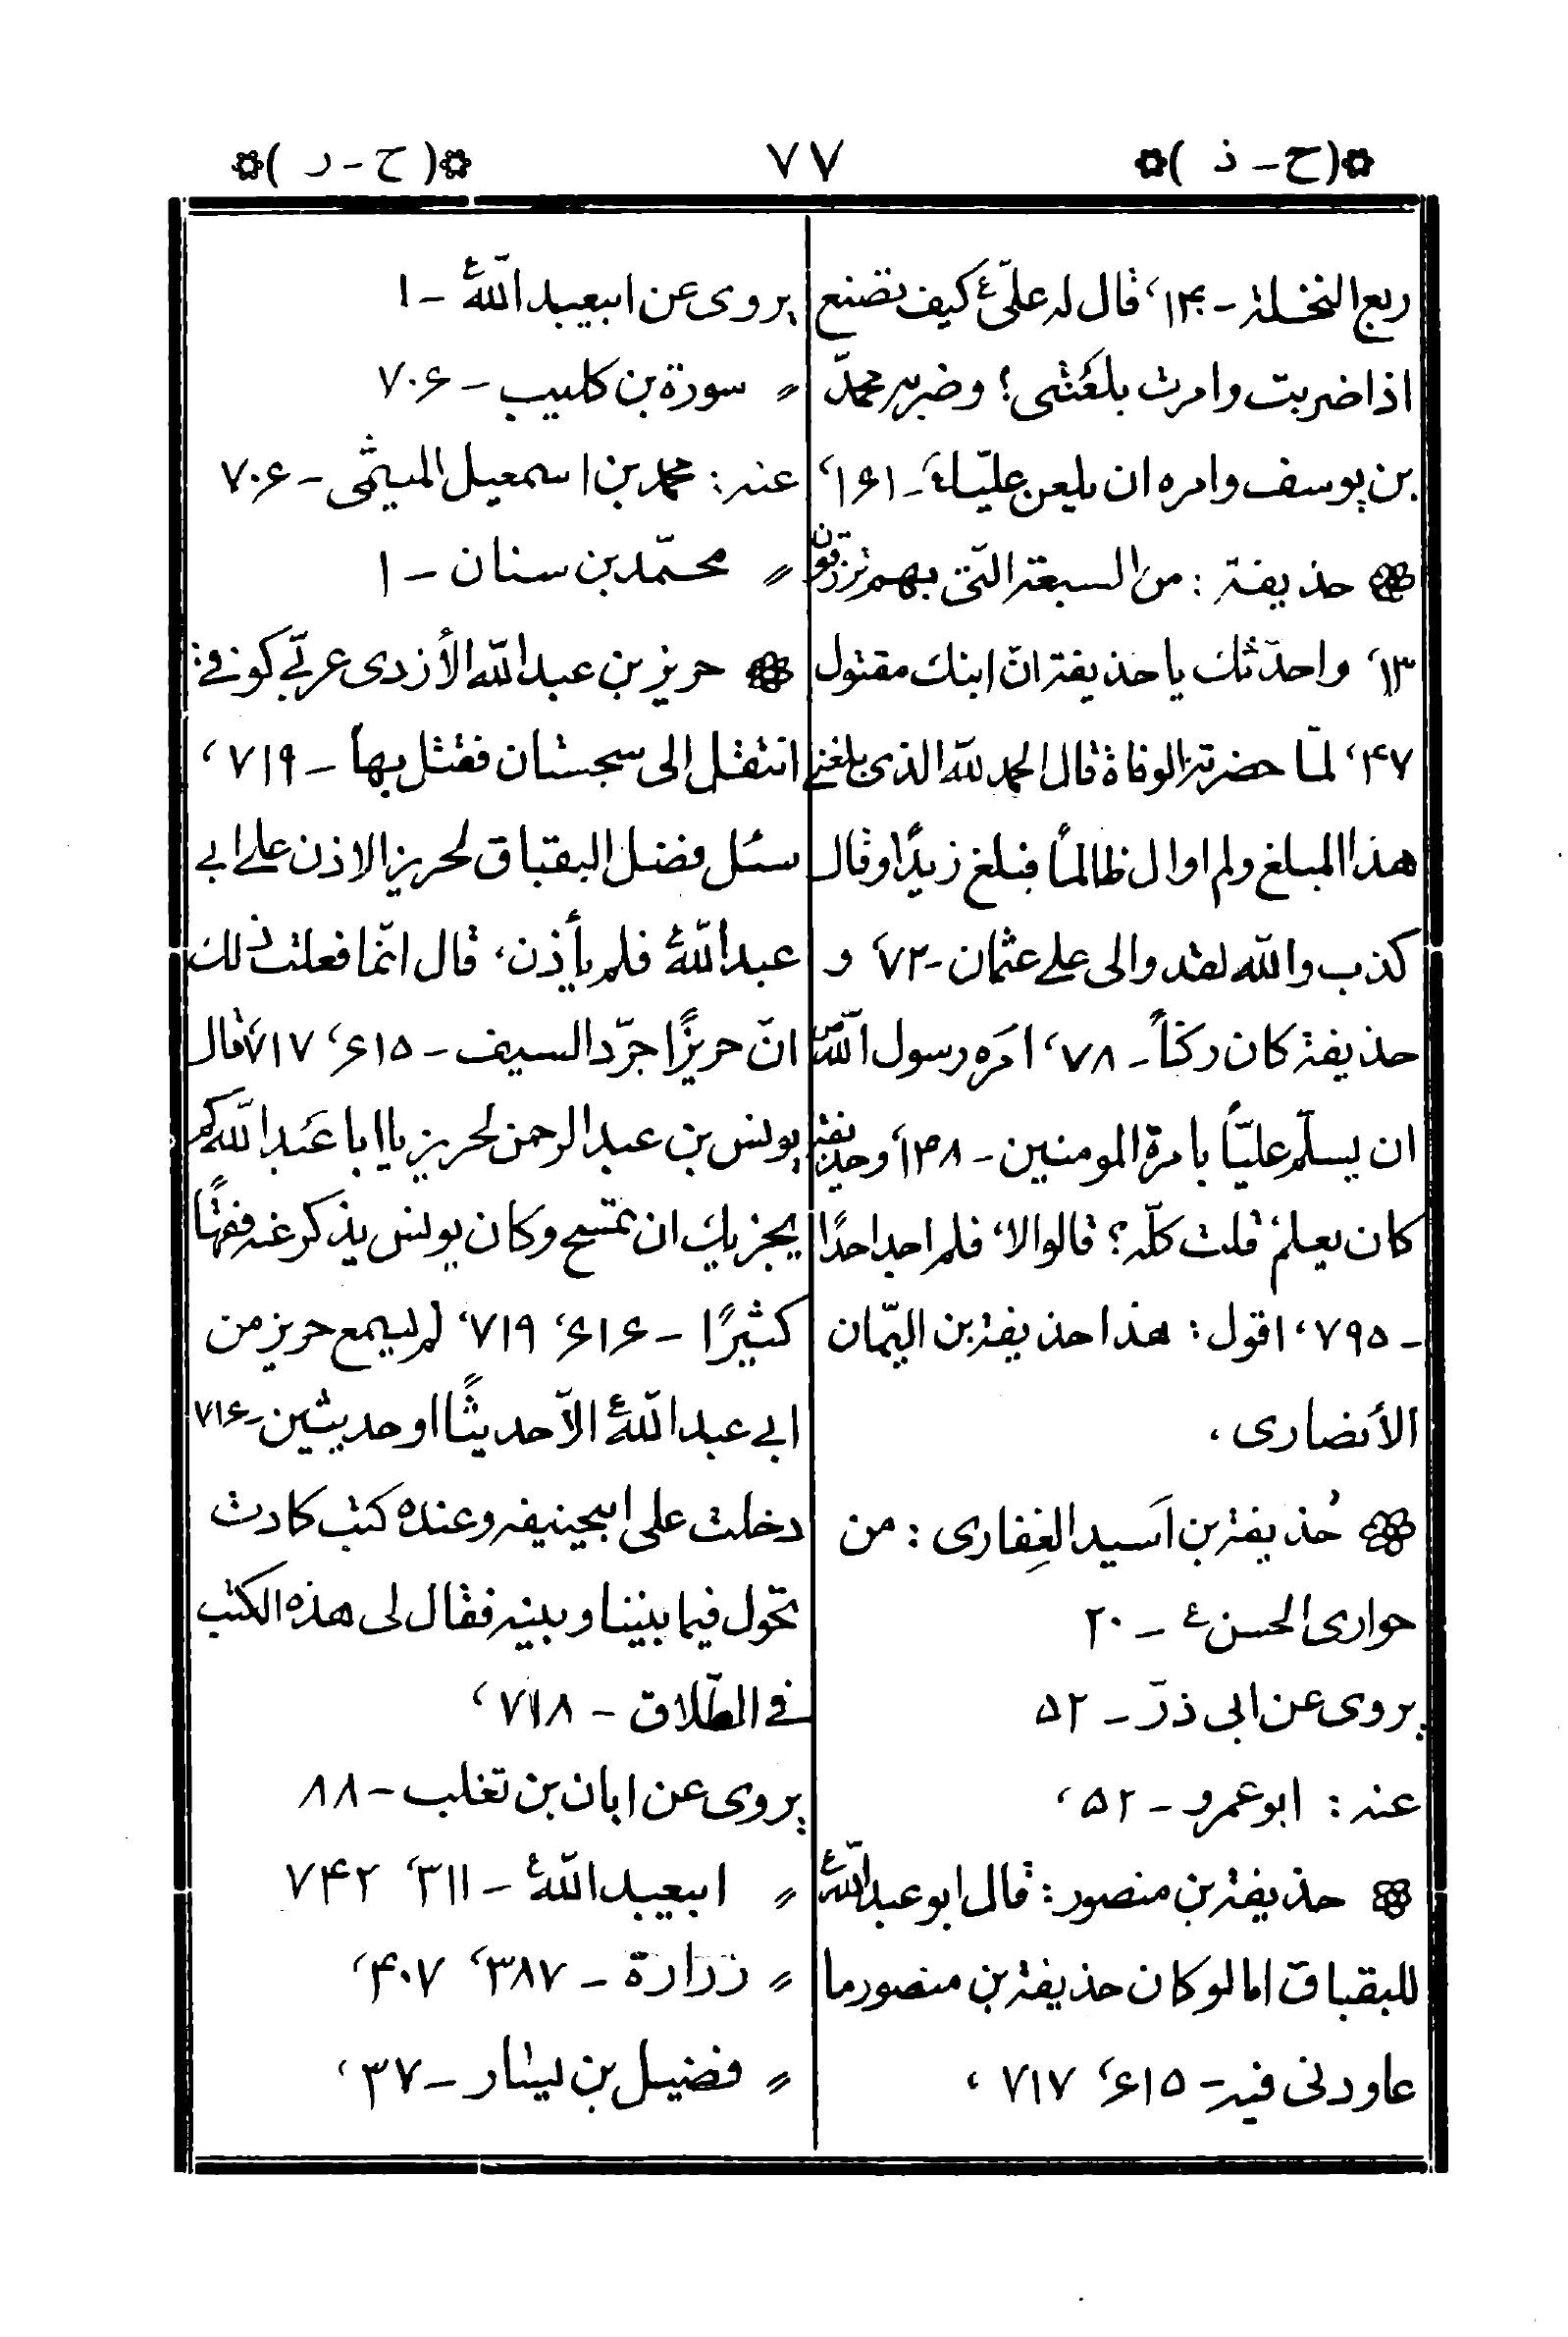 (ح - ذ)
۷۷
(ح - ر)
ربع النخلة - ۱۴۰، قال له علىّ ع كيف تصنع
اذا ضربت وامرت بلعنتى؟ وضربه محمّد
بن يوسف وامره ان يلعن عليّا ع - ۱۶۱،
حذيفة : من السبعة الّتى بهم ترزقون
۱۳، واحدّثك يا حذيفة انّ ابنك مقتول
۴۷، لمّا حضرته الوفاة قال الحمد لله الذى بلغنى
هذا المبلغ ولم اوال ظالمًا فبلغ زيدًا وقال
كذب والله لقد والى على عثمان - ۷۲، و
حذيفة كان ركناً - ۷۸، امَره رسول اللّه ص
ان يسلّم عليّاً بامرة المومنين - ۱۳۸، وحذيفة
كان يعلم؟ قلت كلّه؟ قالوا لا، فلم اجد احدًا
- ۷۹۵، اقول : هذا حذيفة بن اليّمان
الأنصارى،
حُذيفة بن اَسيد الغِفارى : من
حوارى الحسن ع - ۲۰
يروى عن ابى ذرّ - ۵۲
عنه : ابو عمرو - ۵۲،
حذيفة بن منصور : قال ابو عبد اللّه ع
للبقباق اما لو كان حذيفة بن منصور ما
عاودنى فيه - ۶۱۵، ۷۱۷،
يروى عن ابيعبد اللّه ع - ۱
〃 سورة بن كليب - ۷۰۶
عنه : محمد بن اسمعيل الميثمى - ۷۰۶
〃 محمّد بن سنان - ۱
حريز بن عبد اللّه الأزدى عربّى كوفى :
انتقل الى سجستان فقتل بها - ۷۱۹،
سئل فضل البقباق لحريز الاذن على ابى
عبد اللّه ع فلم يأذن، قال انّما فعلت ذلك
انّ حريزًا جرّد السيف - ۶۱۵، ۷۱۷، قال
يونس بن عبد الرحمن لحريز يا ابا عَبد اللّه كم
يجزيك ان تمسح وكان يونس يذكر عنه فقهًا
كثيرًا - ۶۱۶، ۷۱۹، لم يسمع حريز من
ابى عبد اللّه ع الاّ حديثًا او حديثين - ۷۱۶
دخلت على ابيحنيفه وعنده كتب كادت
تحول فيما بيننا وبينه فقال لى هذه الكتب
فى الطّلاق - ۷۱۸،
يروى عن ابان بن تغلب - ۸۸
〃 ابيعبد اللّه ع - ۳۱۱، ۷۴۲
〃 زرارة - ۳۸۷، ۴۰۷،
〃 فضيل بن يسار - ۳۷،